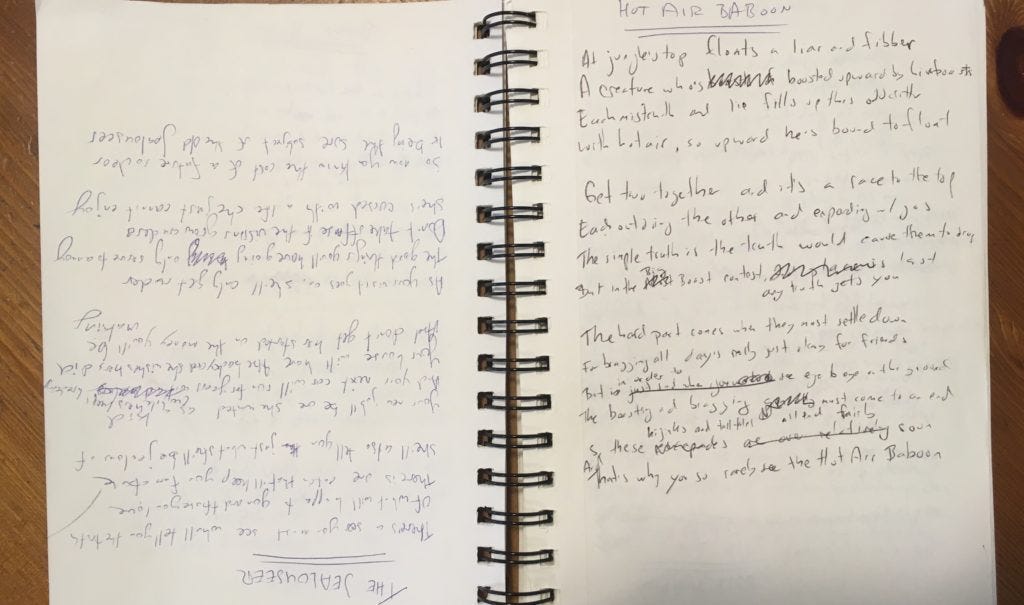 HOT AIR BABOON
At jungle's top floats a liar and fibber
A creature who's boosted upward by
Each mistruth and lie fills up this oddity
With hot air, so upward he's bound to float
Get two together and it's a race to the top
Each outdoing the other and expanding w/ gas
The simple truth is the truth would cause them to drop
But in the Big Boast contest, is last
any truth gets you
The hard part comes when they must settle down
For bragging all day's really just okay for friends
in order to
But see eye to eye on the ground
The boasting and bragging must come to an end
hijinks and tall tales all end fairly
So these soon
And that's why you so rarely see the Hot Air Baboon
THE JEALOUSEER
There's a seer you must see who'll tell you the truth
Of what will happen to you and those you love
There is one catch that'll keep you from there
She'll also tell you just what she'll be jealous of
kid
Your new job'll be one she wanted as
And your next car will run for years
Your house will have the backyard she's always
And don't get her started on the money you'll be
making
As your visit goes on, she'll only get ruder
The good things you'll have going only serve to annoy
Don't take offense if the visions grow cruder
She's cursed with a life she just cannot enjoy
So now you know the cost of a future so clear
Is being the sore subject of the old jealouseer